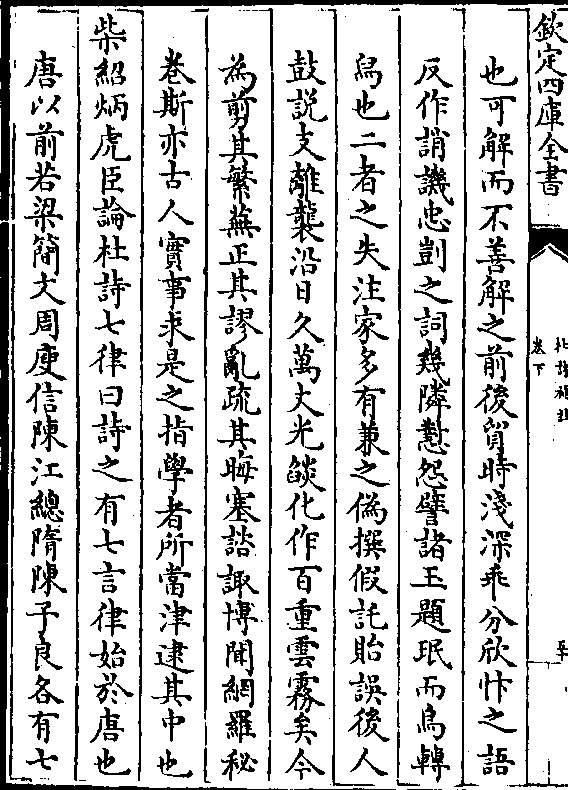 欽定四庫全書
卷下
也可解而不善解之前後貿時淺深乖分欣忭之語
反作誚譏忠剴之詞幾隣懟怨譬諸玉題珉而烏轉
舄也二者之失注家多有兼之偽撰假託貽誤後人
鼓説支離襲沿日久萬丈光燄化作百重雲霧矣今
為剪其繁蕪正其謬亂疏其晦塞諮諏博聞網羅秘
巻斯亦古人實事求是之指學者所當津逮其中也
柴紹炳虎臣論杜詩七律曰詩之有七言律始於唐也
唐以前若梁簡文周庾信陳江總隋陳子良各有七